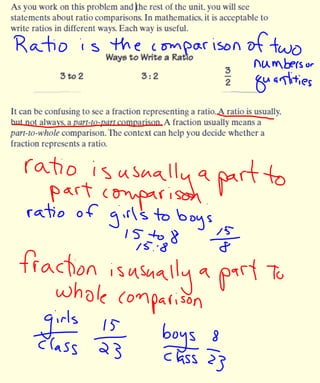 As you work on this problem and the rest of the unit, you will see
statements about ratio comparisons. In mathematics, it is acceptable to
write ratios in different ways. Each way is useful.
Ratio is the comparison of two
numbers or
quantities
Ways to Write a Ratio
3 to 2    3 : 2    3/2
It can be confusing to see a fraction representing a ratio. A ratio is usually,
but not always, a part-to-part comparison. A fraction usually means a
part-to-whole comparison. The context can help you decide whether a
fraction represents a ratio.
ratio is usually a part to
part comparison.
ratio of girls to boys
15 to 8    15/8
15:8
fraction is usually a part to
whole comparison
girls/class    15/23    boys/class    8/23